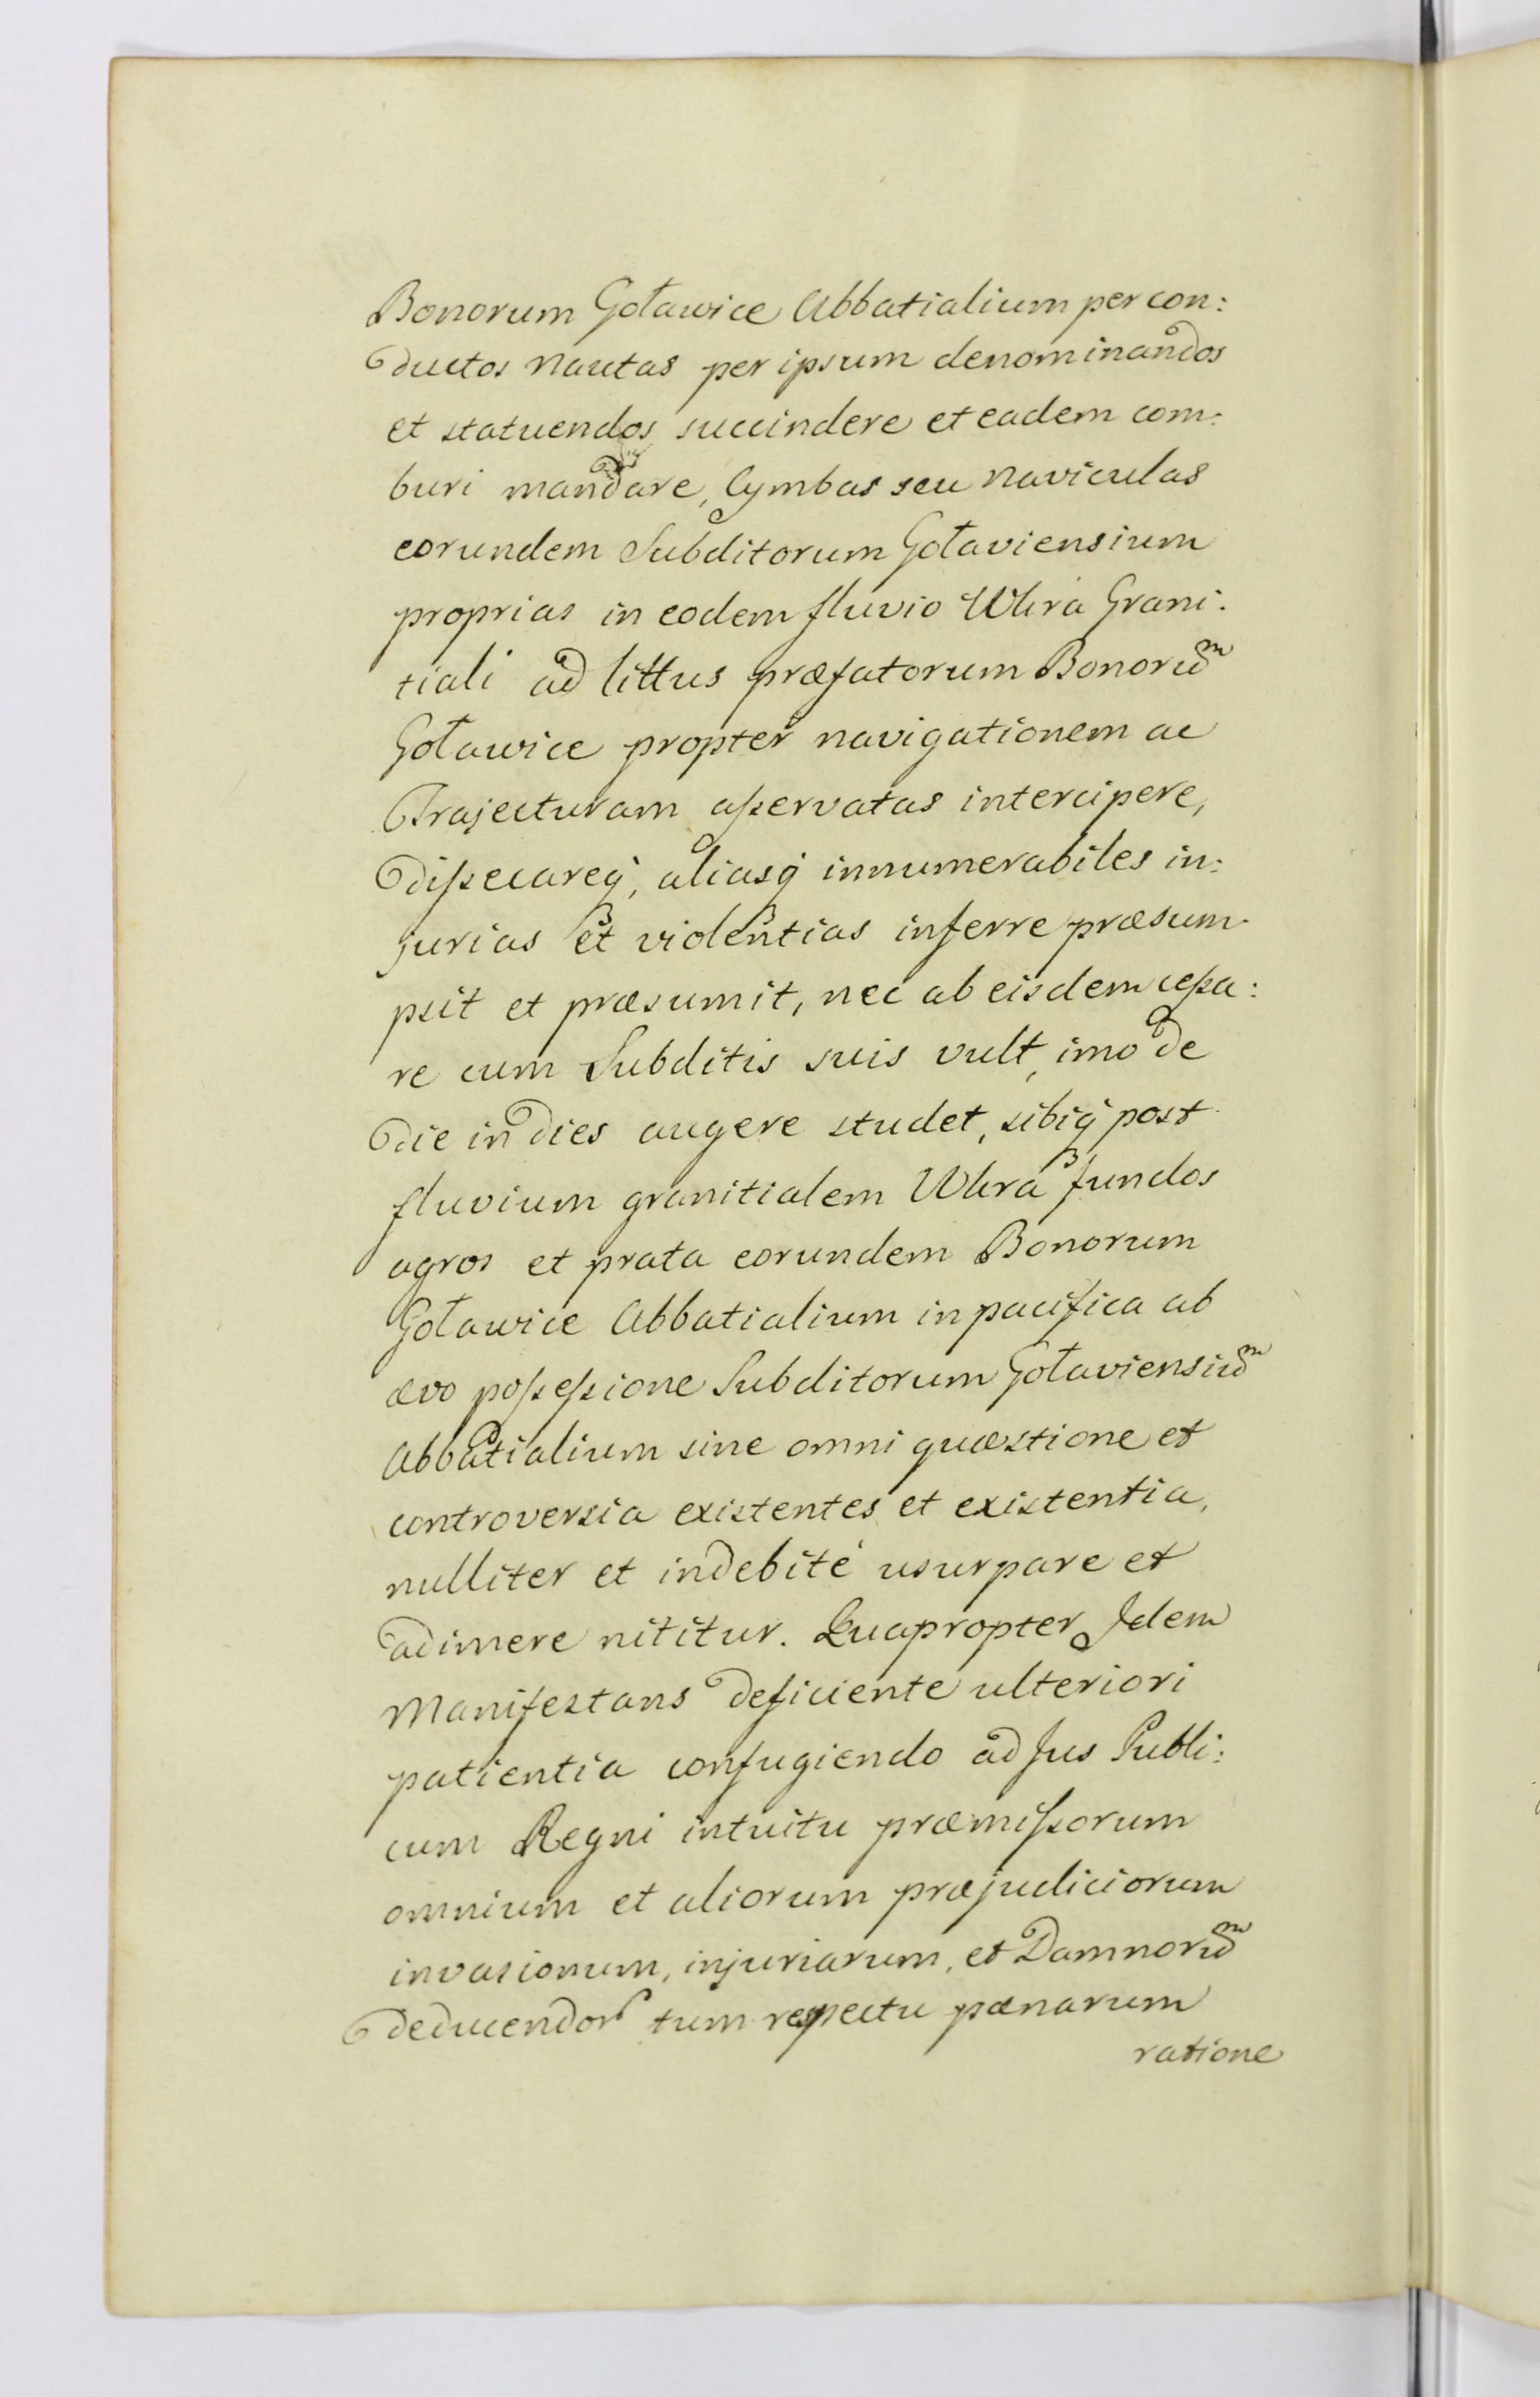 Bonorum Goławice Abbatialium per con:
ductos Nautas per ipsum denominandos
et statuendos succindere et eadem com:
buri mandare, Cymbas seu Naviculas
eorundem Subditorum Gołaviensium
proprias in eodem fluvio Wkra Grani:
tiali ad littus præfatorum Bonorum
Goławice propter navigationem ac
Trajecturam asservatas intercipere,
dissecareq, aliasq innumerabiles in:
jurias et violentias inferre præsum:
psit et præsumit, nec ab eisdem cessa:
re cum Subditis suis vult, imo de
die in dies augere studet, sibiq post
fluvium granitialem Wkra fundos
agros et prata eorundem Bonorum
Goławice Abbatialium in pacifica ab
ævo possessione Subditorum Gołaviensium
Abbatialium sine omni quæstione et
controversia existentes et existentia,
nulliter et indebité usurpare et
adimere nititur. Quapropter Idem
Manifestans deficiente ulteriori
patientia confugiendo ad Jus Publi:
cum Regni intuitu præmissorum
omnium et aliorum præjudiciorum
invasionum, injuriarum, et Damnorum
deducendor tum respectu pænarum
ratione